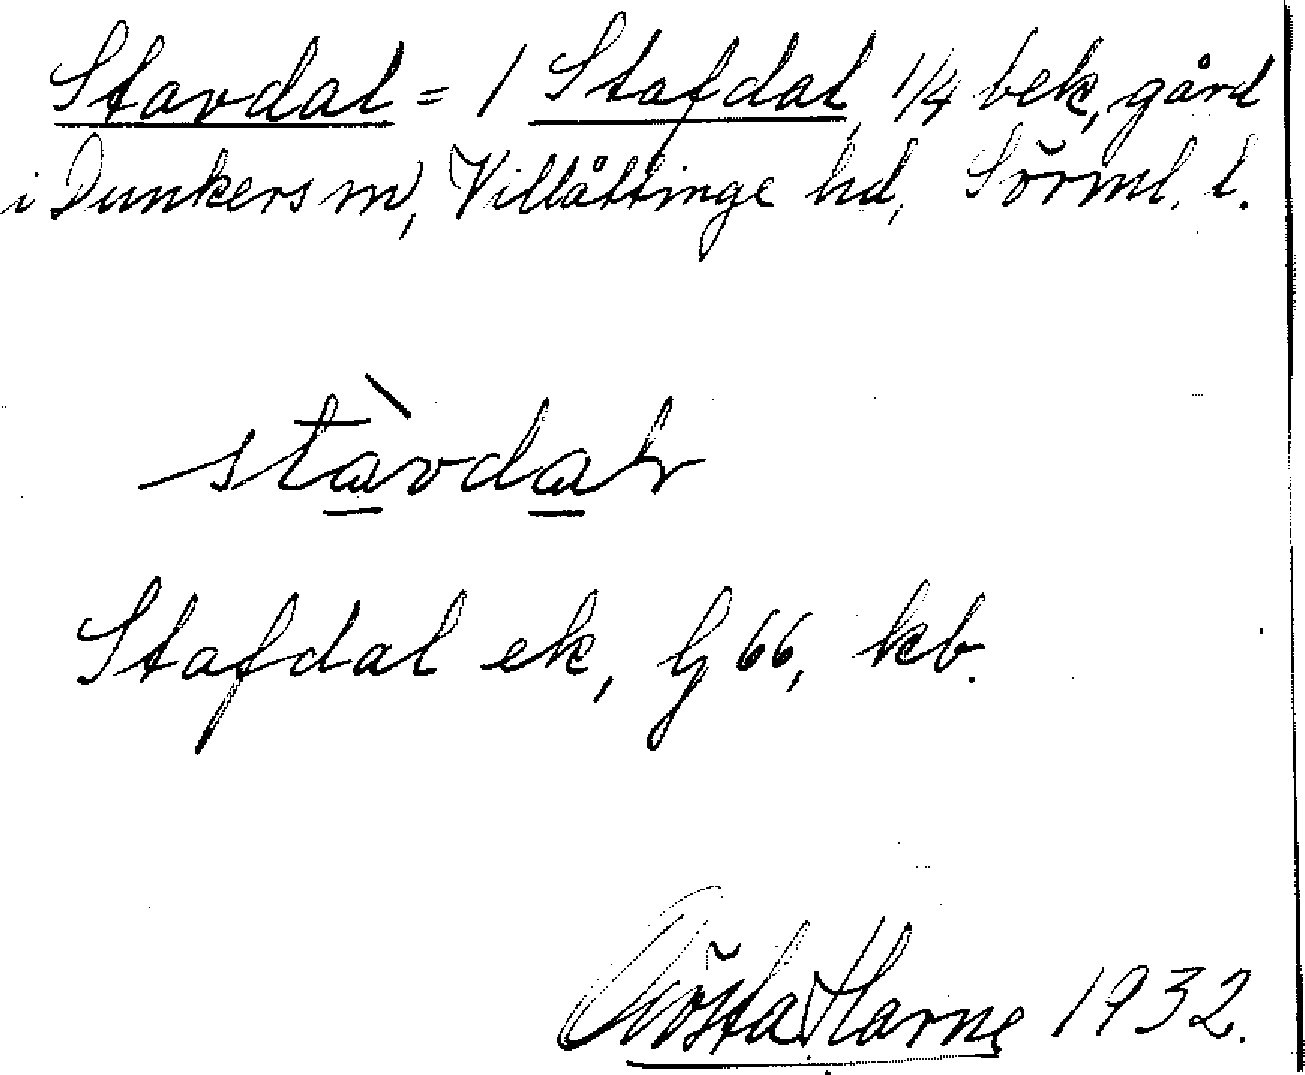 Stavdal = 1 Stafdal, 1/4 bek, gård
i Dunkers sn, Villåttinge hd, Sörml. l.
stàvdal
Stafdal ek, Gj 66, kb.
Gösta Harne 1932.